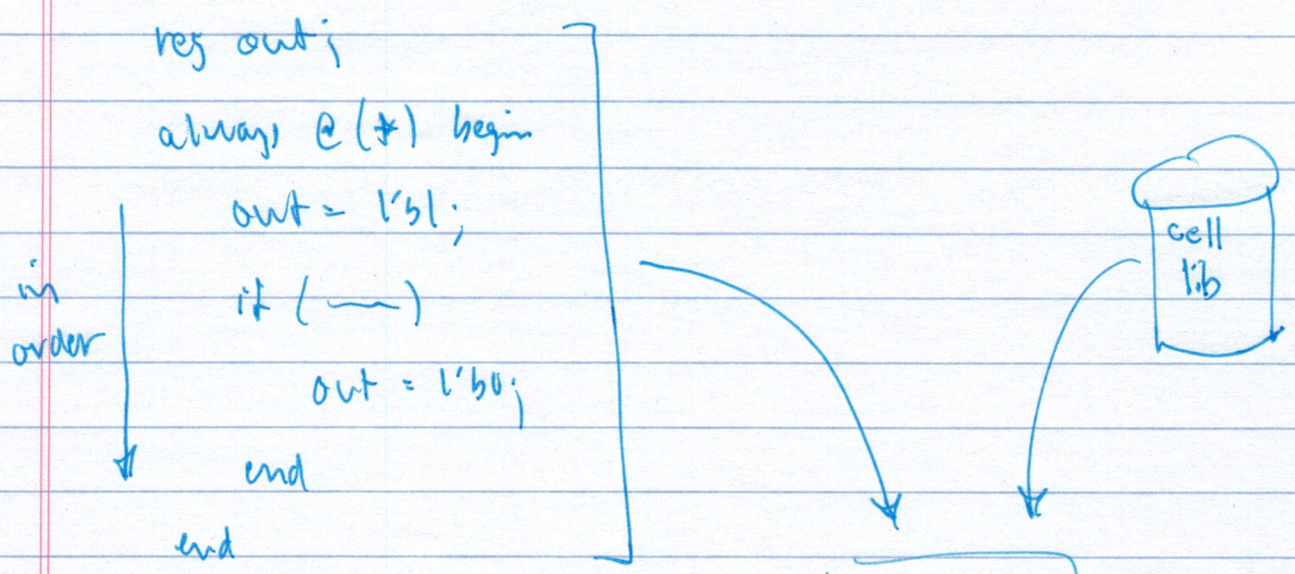 reg out;
always @(*) begin
out = 1'b1;
if (——)
out = 1'b0;
end
end
in
order
cell
lib